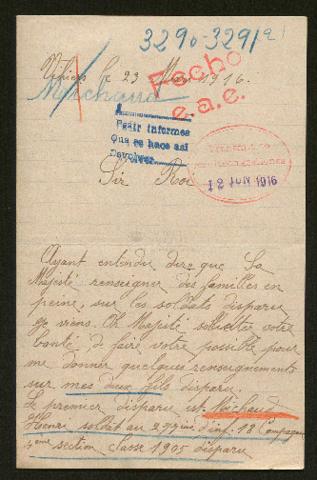 3290-3291
Vihiers le 23 Mai 1916.
Hecho
e.a.e.
Michaud
Pedir informes
Que se hace así
Devolver
12 JUN 1916
Sir Roi
Ayant entendu dire que Sa
Majesté renseigner des familles en
peine, sur les soldats disparu
je viens. Oh Majesté solliciter votre
bonté de faire votre possible pour
me donner quelques renseignements
sur mes deux fils disparu.
Le premier disparu est Michaud
Henri soldat au 277 ème d'inf. 18 Compagnie
4ème section Classe 1905 disparu